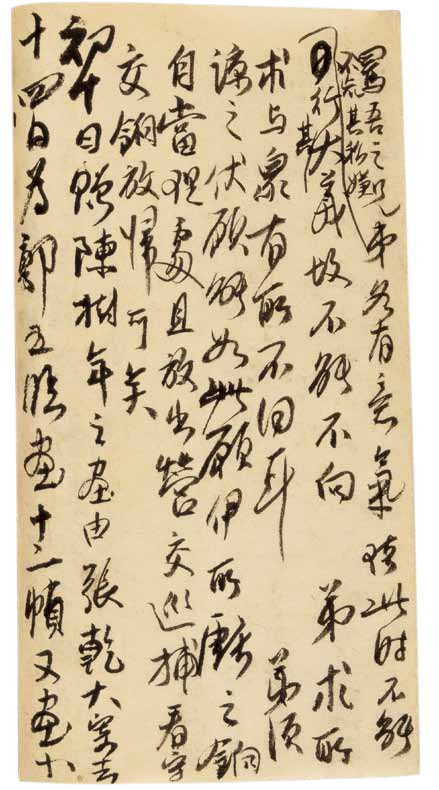 罵吾之兄弟多有意氣此時不能
其私嫌
行其義故不能不向 弟求所
求与眾有所不同耳 弟須
諒之伏願能如此願伊所竊之銅
自當處且放出營交巡捕看守
交銅放歸可矣
初十日贈陳樹年之畫由張乾大寄去
十四日為鄭五臨畫十二幀又畫十